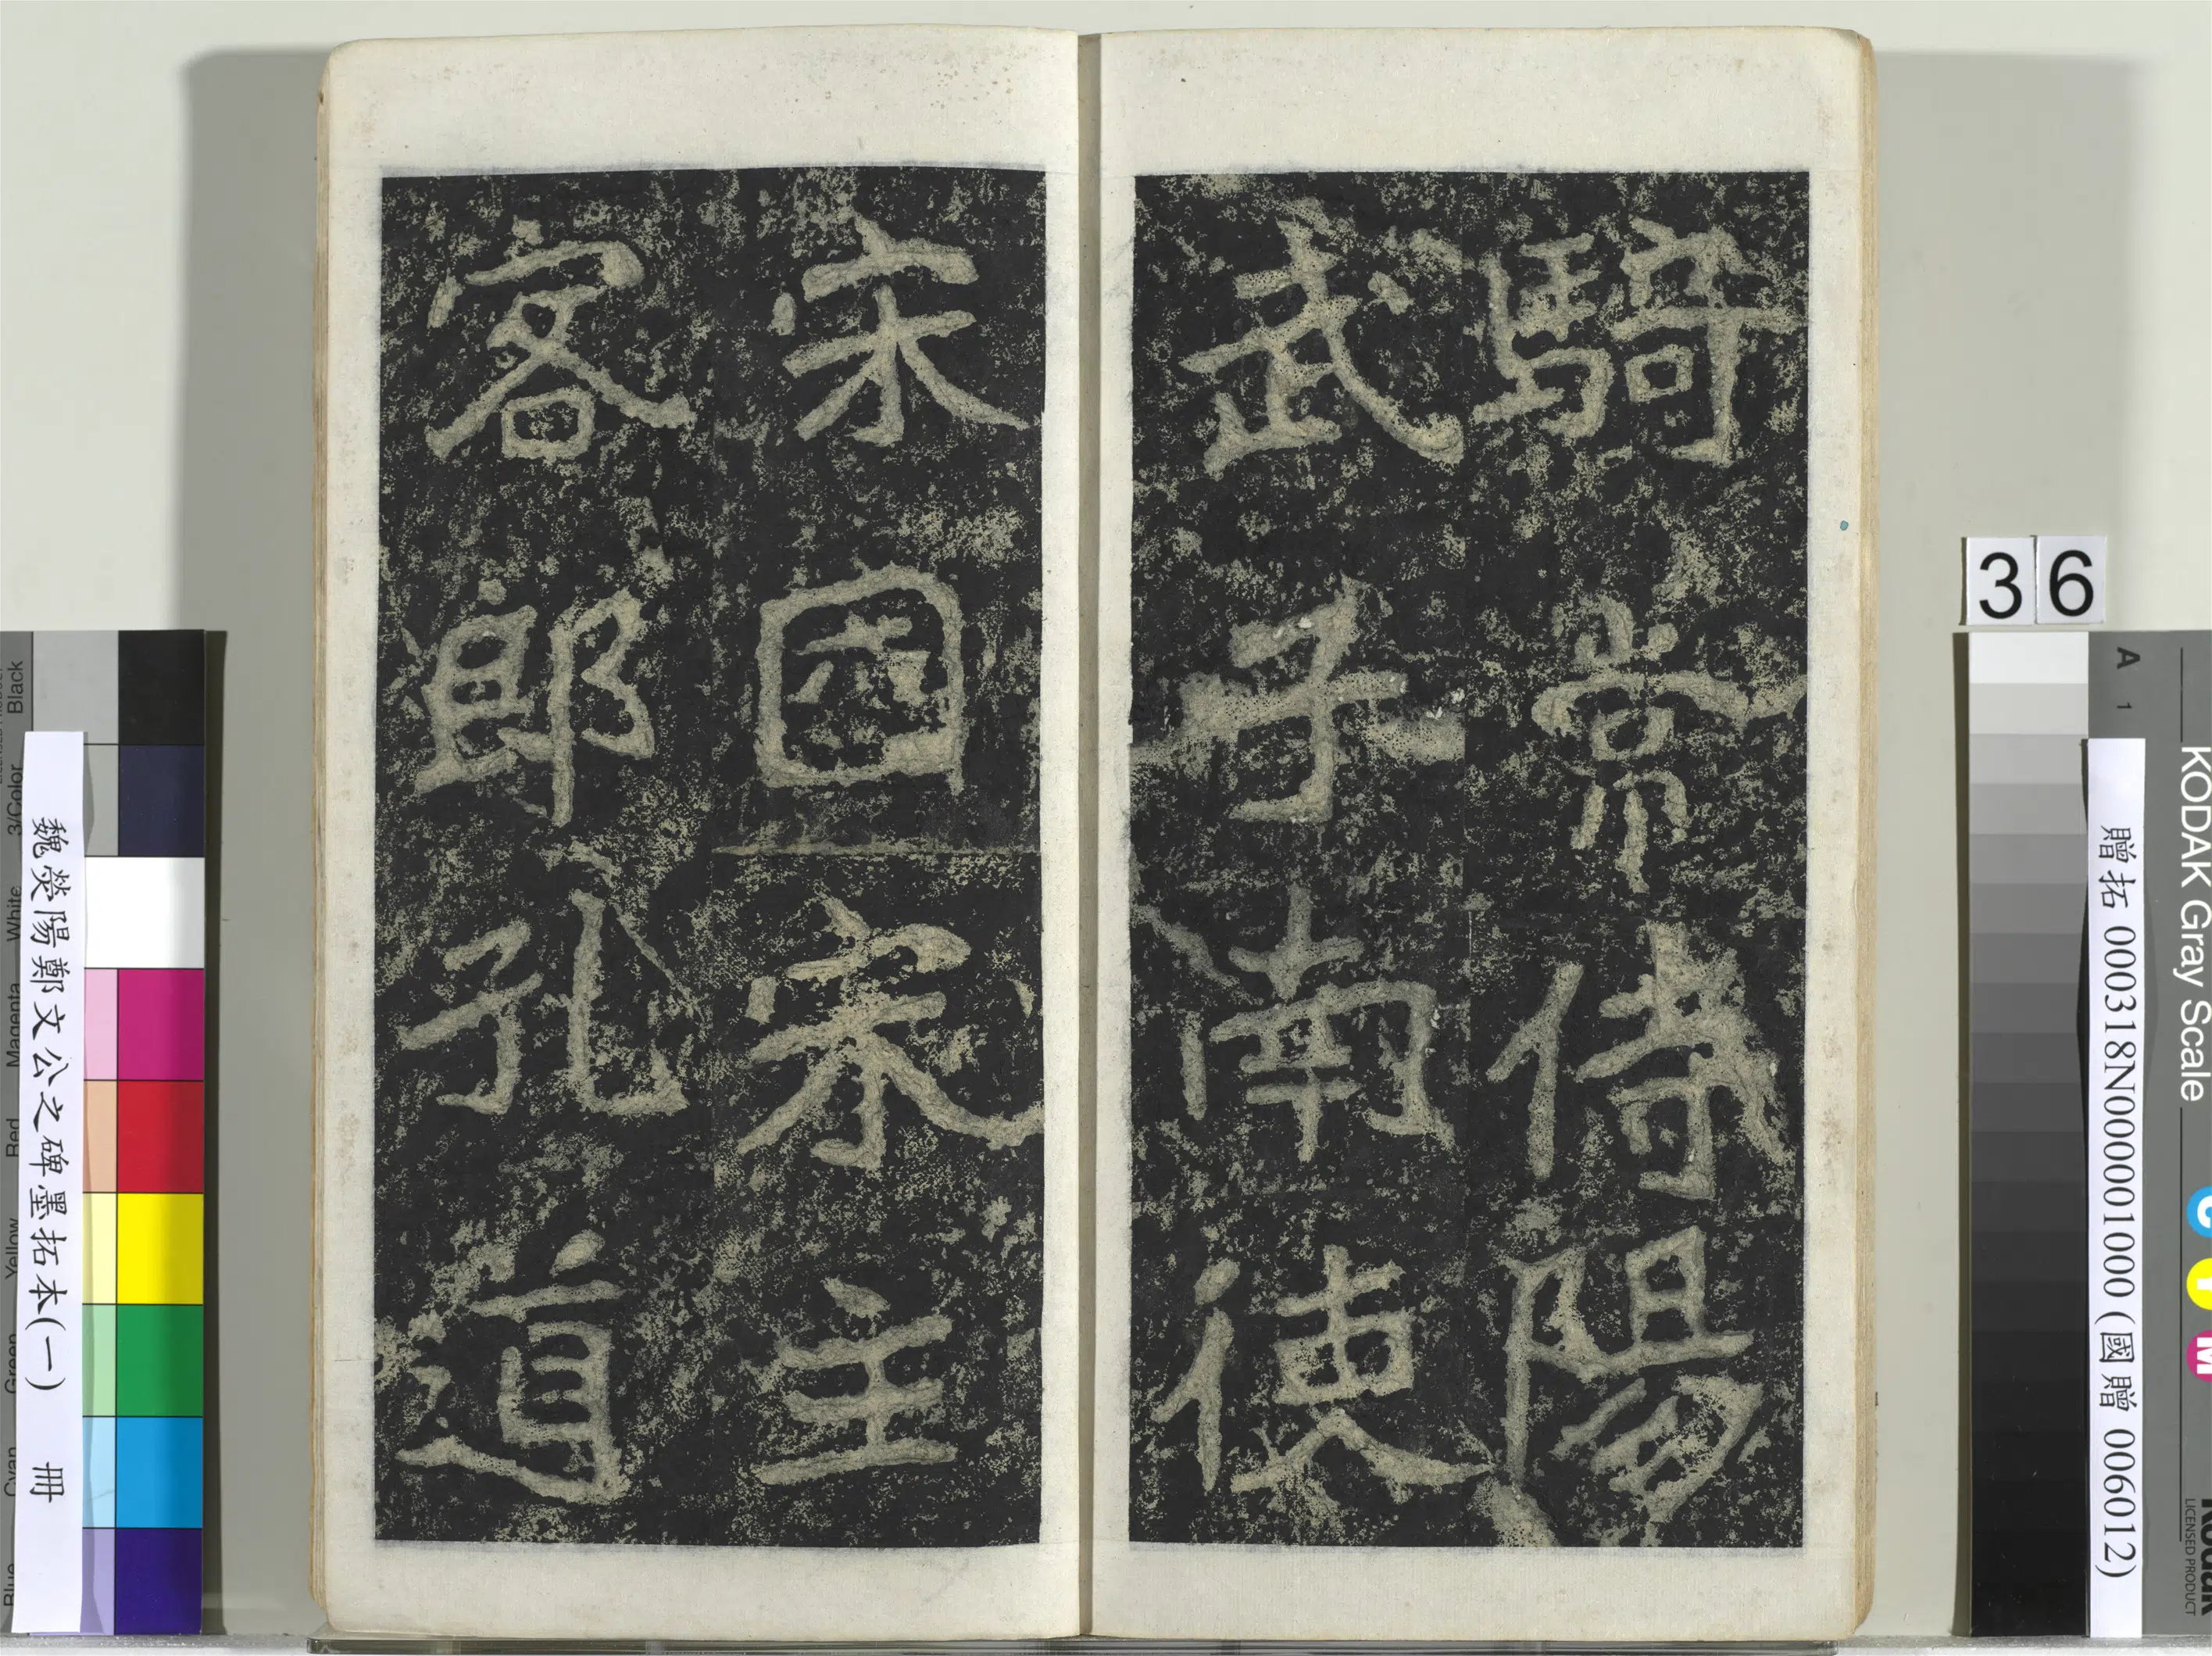 騎常侍陽
武子南使
宋國宋主
客郎孔道
36
魏熒陽鄭文公之碑墨拓本(一) 冊
贈拓 000318N000001000 (國贈 006012)
KODAK Gray Scale
A 1
C Y M
Kodak
LICENSED PRODUCT
Blue Cyan Green Yellow Red Magenta White 3/Color Black